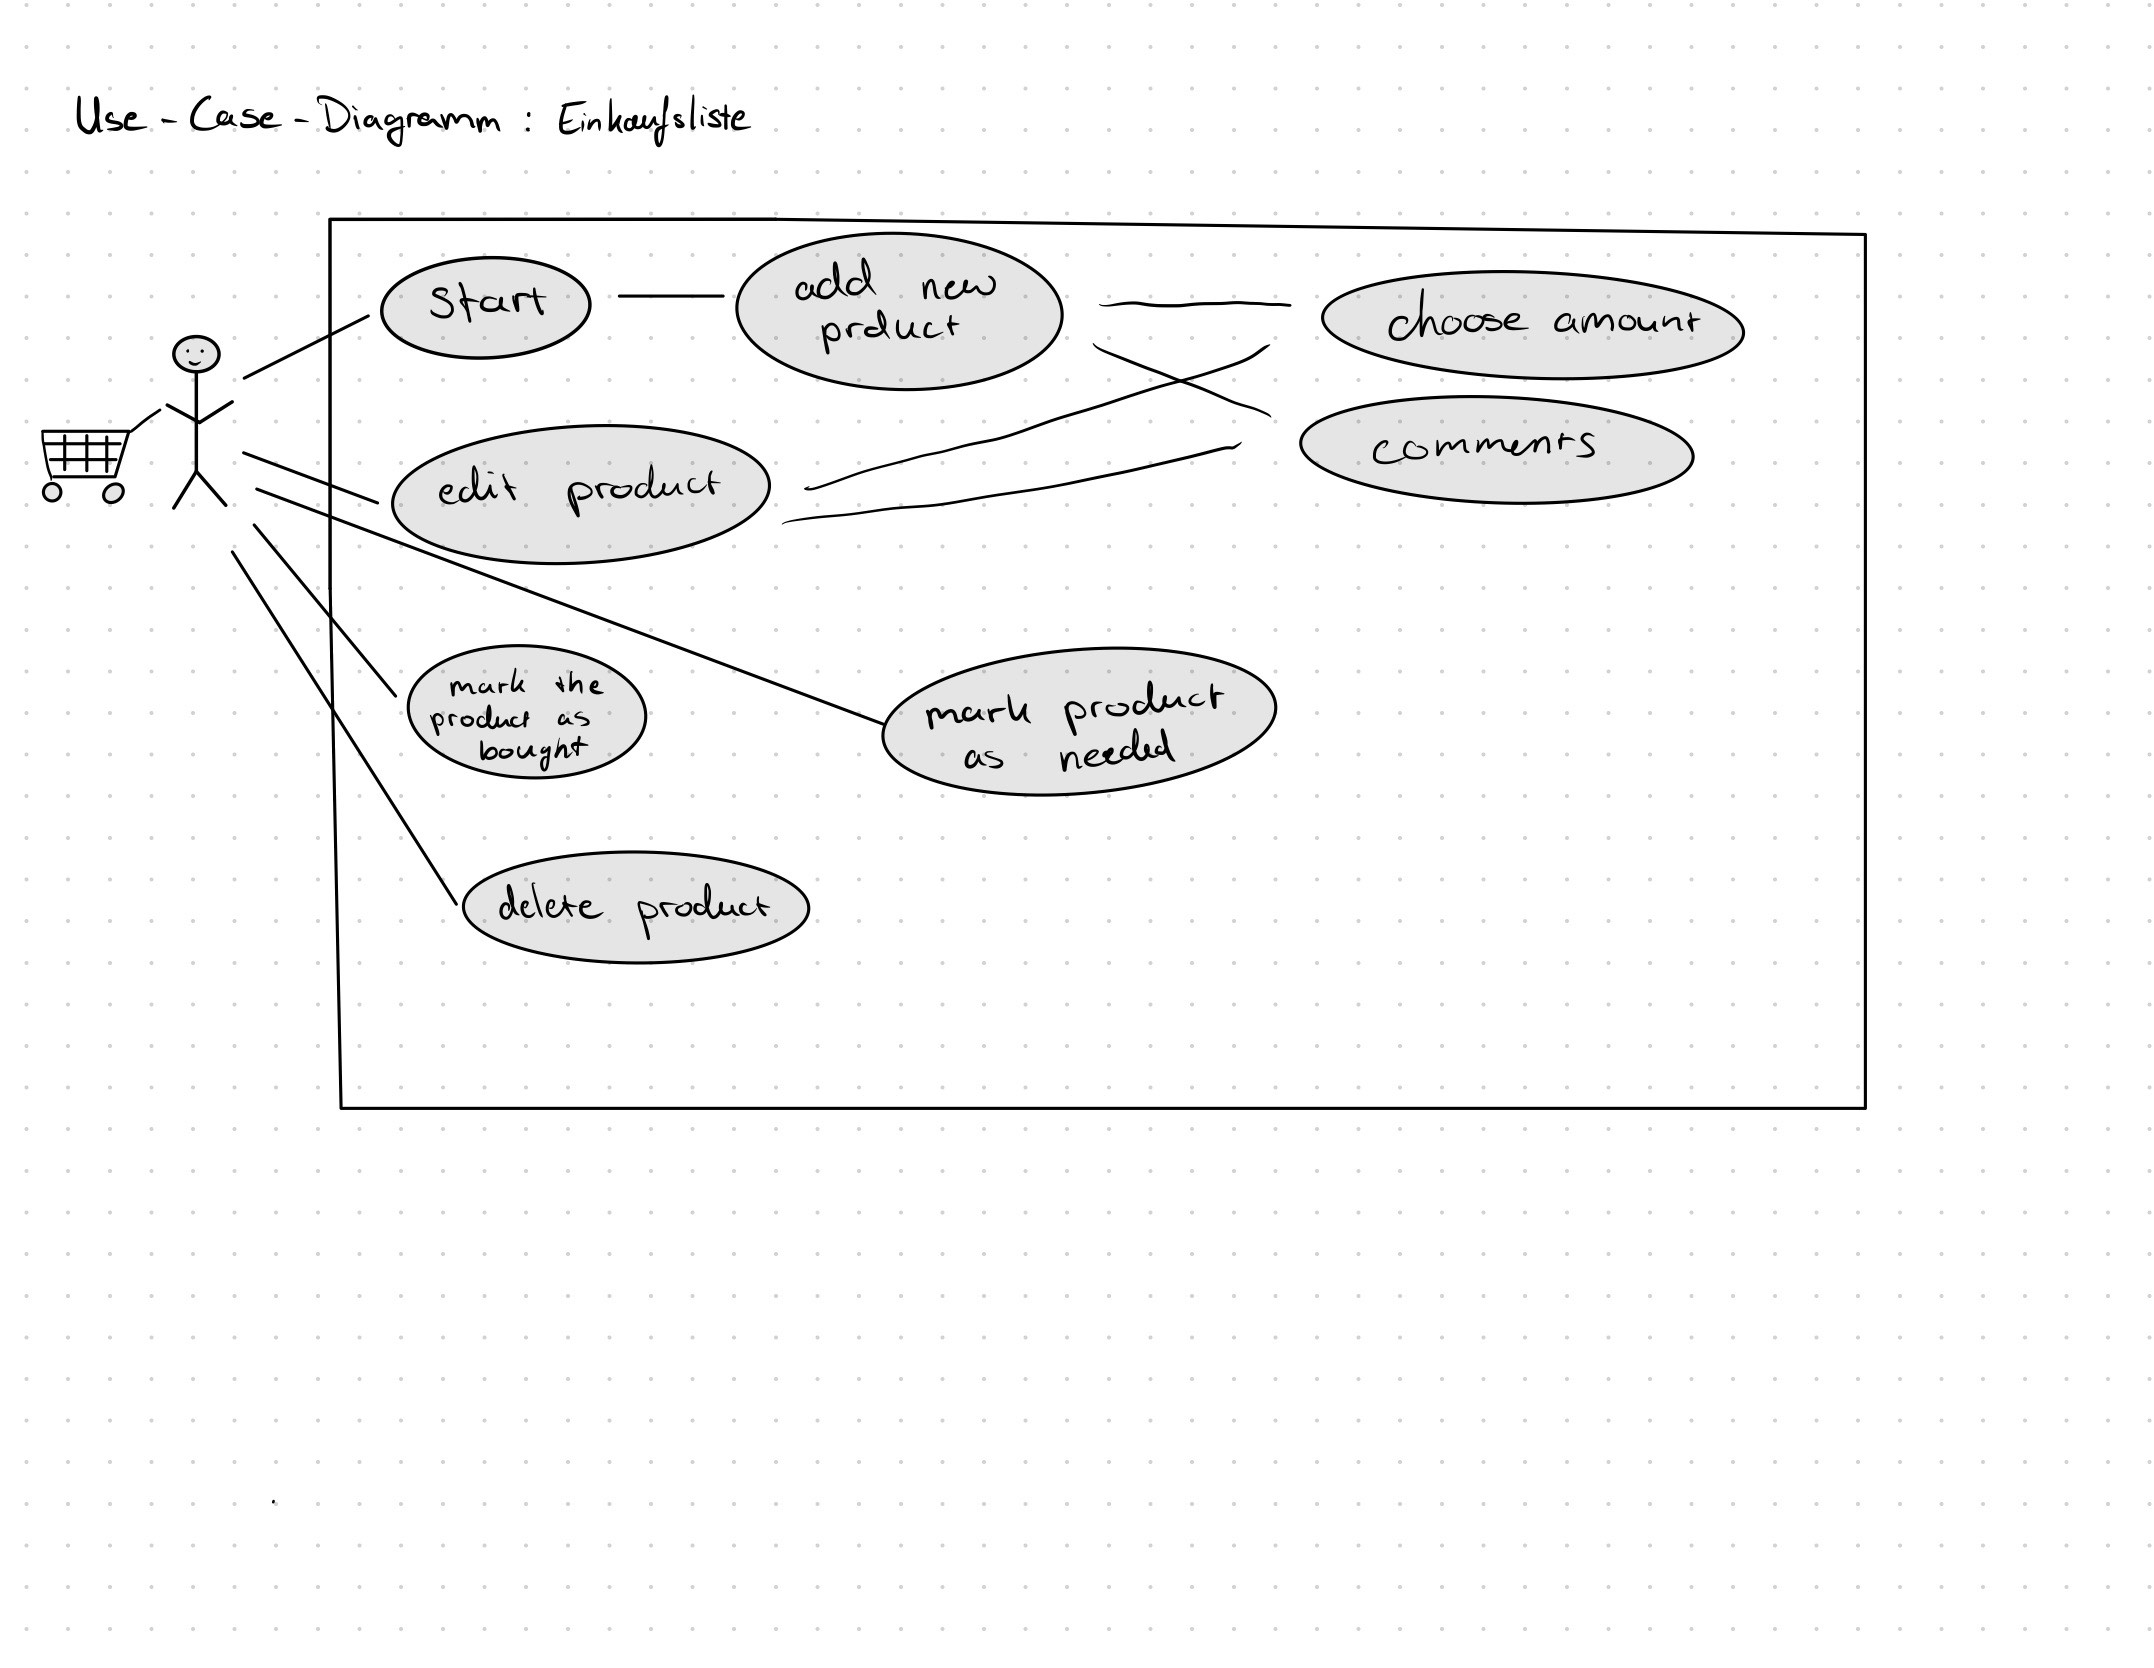 Use-Case-Diagramm : Einkaufsliste
Start
add new
prduct
choose amount
comments
edit product
mark the
product as
bought
mark product
as needed
delete product